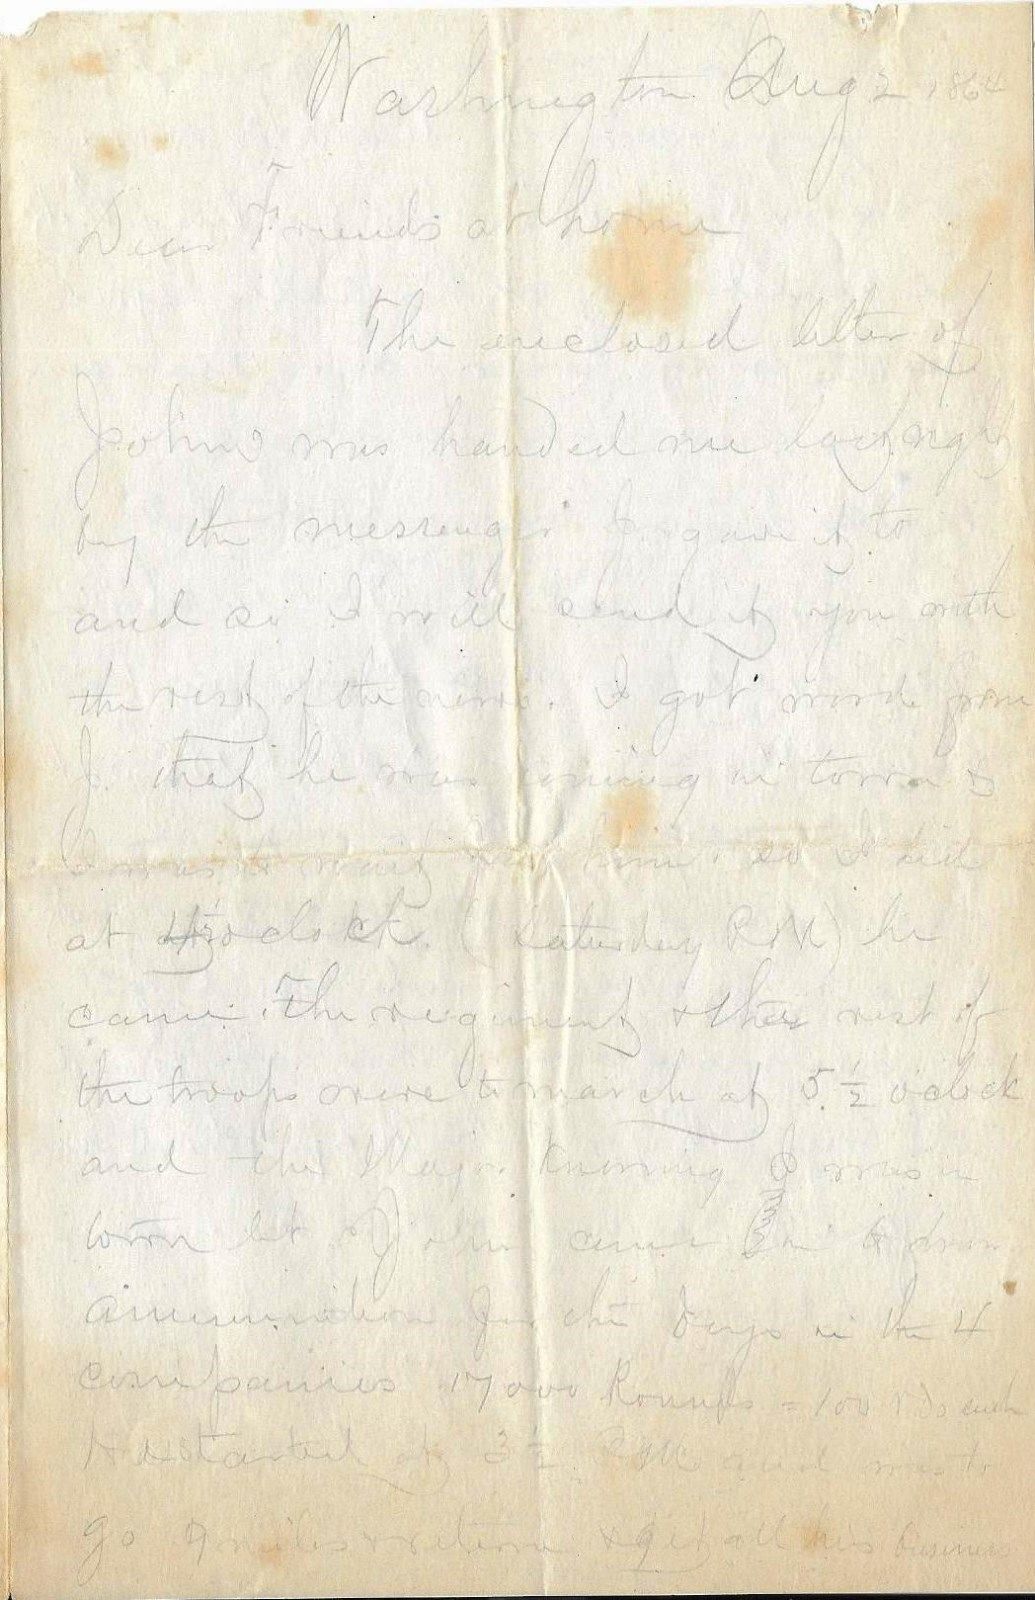 Washington Aug 2 1864
Dear Friends at home
The enclosed letter of
Johns was handed me last night
by the messenger I gave it to
and so I will send it you with
the rest of the news. I got word from
J. that he was coming in town &
I was to wait for him. so I did
at o clock. (Saturday P.M) he
came. The regiment & the rest of
the troops were to march at 5 ½ o'clock
and the Major knowing I was in
town let John come in to draw
ammunition for the boys in the 4
companies 17000 Rounds = 100 rds each
H started at 3 ½ P.M and was to
go 9 miles & return & get all his business